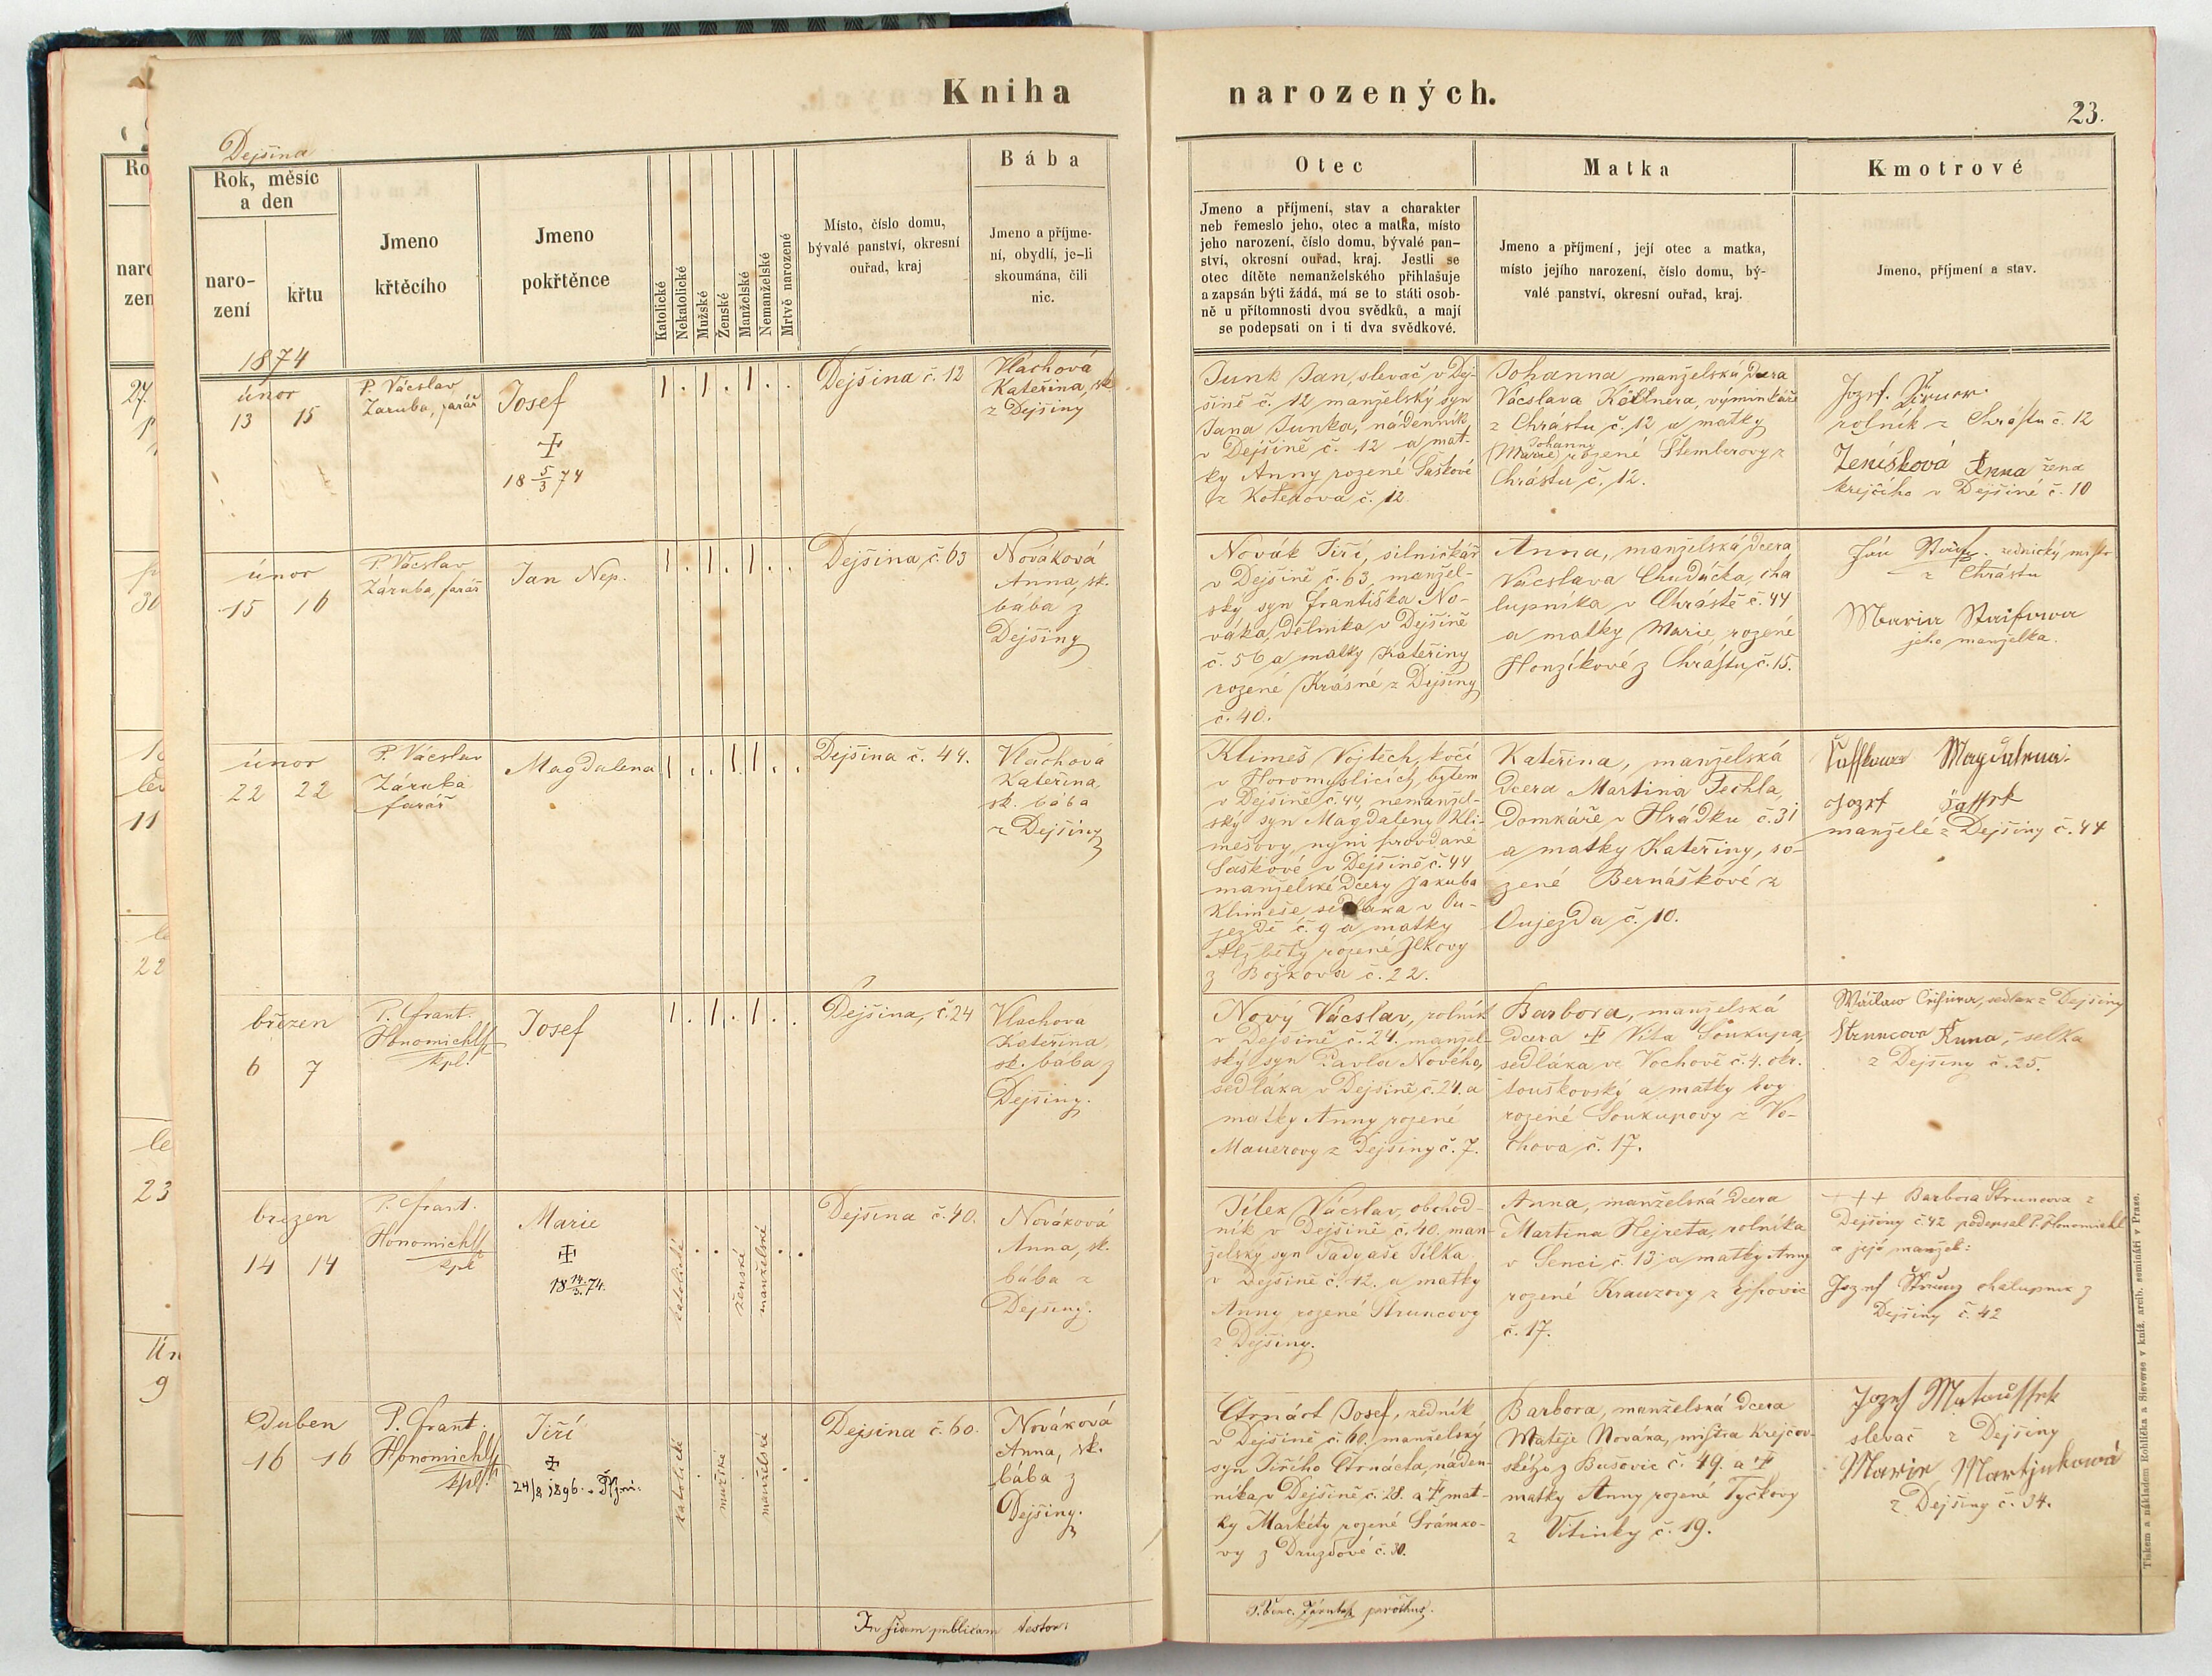 Kniha
narozených.
23.
Dejšina
Rok, měsíc
a den
naro-
zení
křtu
Jmeno
křtěcího
Jmeno
pokřtěnce
Katolické
Nekatolické
Mužské
Ženské
Manželské
Nemanželské
Mrtvě narozené
Místo, číslo domu,
bývalé panství, okresní
ouřad, kraj
Bába
Jmeno a příjme-
ní, obydlí, je-li
skoumána, čili
nic.
Otec
Jmeno a příjmení, stav a charakter
neb řemeslo jeho, otec a matka, místo
jeho narození, číslo domu, bývalé pan-
ství, okresní ouřad, kraj. Jestli se
otec dítěte nemanželského přihlašuje
a zapsán býti žádá, má se to státi osob-
ně u přítomnosti dvou svědků, a mají
se podepsati on i ti dva svědkové.
Matka
Jmeno a příjmení, její otec a matka,
místo jejího narození, číslo domu, bý-
valé panství, okresní ouřad, kraj.
Kmotrové
Jmeno, příjmení a stav.
1874
únor
13 15
P. Vácslav
Záruba, farář
Josef
18 5/3 74
Dejšina č. 12
Vlachová
Kateřina, sk.
z Dejšiny
Junk Jan, slevač v Dej-
šině č. 12 manželský syn
Jana Junka, nádenník
v Dejšině č. 12 a mat-
ky Anny rozené Šaškové
z Koterova č. 12
Johanna manželská dcera
Vácslava Költnera, výminkáře
z Chrástu č. 12 a matky
Johanny
(Marie) rozené Štemberovy z
Chrástu č. 12.
Jozef
rolník z Chrástu č. 12
Zeníšková Anna žena
krejčího v Dejšině č. 10
únor
15 16
P. Vácslav
Záruba, farář
Jan Nep.
Dejšina č. 63
Nováková
Anna, sk.
bába z
Dejšiny
Novák Jiří, silničkář
v Dejšině č. 63, manžel-
ský syn Františka No-
váka, dělníka v Dejšině
č. 56 a matky Kateřiny
rozené Krásné z Dejšiny
č. 40.
Anna, manželská dcera
Vácslava Chudáčka, cha
lupníka v Chrástě č. 44
a matky Marie, rozené
Honzíkové z Chrástu, č. 15.
Ján zednický mistr
z Chrástu
Maria Staifowa
jeho manželka.
únor
22 22
P. Vácslav
Záruba
farář
Magdalena
Dejšina č. 44.
Vlachová
Kateřina,
sk. bába
z Dejšiny
Klimeš Vojtěch, kočí
v Horomyslicích, bytem
v Dejšině č. 44, nemanžel-
ský syn Magdaleny Kli-
mešovy, nyní provdané
Šaškové v Dejšině č. 44
manželské dcery Jakuba
Klimeše, sedláka v Ou-
jezdě č. 9 a matky
Alžběty rozené Jlkovy
z Božkova č. 22.
Kateřina, manželská
dcera Martina Techla,
domkáře v Hrádku č. 31
a matky Kateřiny, ro-
zené Bernáškové z
Oujezda č. 10.
Magdalena
Jozef
manželé z Dejšiny č. 44
březen
6 7
P. Frant.
Honomichl
kpl.
Josef
Dejšina, č. 24
Vlachová
Kateřina,
sk. bába z
Dejšiny.
Nový Vácslav, rolník
v Dejšině č. 24. manžel-
ský syn Pavla Nového,
sedláka v Dejšině č. 24. a
matky Anny rozené
Mauerovy z Dejšiny č. 7.
Barbora, manželská
dcera ‡ Víta Soukupa,
sedláka ve Vochově č. 4. okr.
touškovský a matky Evy
rozené Soukupovy z Vo-
chova č. 17.
sedlák z Dejšiny
Struncova Anna, selka
z Dejšiny č. 25.
březen
14 14
P. Frant.
Honomichl
kpl
Marie
18 14/3. 74.
katolické
ženské
manželské
Dejšina č. 40.
Nováková
Anna, sk.
bába z
Dejšiny.
Jílek Vácslav, obchod-
ník v Dejšině č. 40. man-
želský syn Tadyaše Jílka
v Dejšině č. 12. a matky
Anny rozené Struncovy
z Dejšiny.
Anna, manželská dcera
Martina Hejreta, rolníka
v Senci č. 13 a matky Anny
rozené Krauzovy z
č. 17.
+++ Barbora Struncova z
Dejšiny č. 42 podepsal P. Honomichl
a její manžel:
Jozef Strunz chalupník z
Dejšiny č. 42
Duben
16 16
P. Frant.
Honomichl
kpl.
Jiří
24/8 1896.
katolické
mužské
manželské
Dejšina č. 60.
Nováková
Anna, sk.
bába z
Dejšiny.
Čtrnáct Josef, zedník
v Dejšině č. 60. manželský
syn Jiřího Čtrnácta, náden-
níka v Dejšině č. 28. a ‡ mat-
ky Markéty rozené Šrámko-
vy z Druzdové č. 30.
Barbora, manželská dcera
Matěje Nováka, mistra krejčov-
ského z Bušovic č. 49. a ‡
matky Anny rozené Tyčkovy
z Vitinky č. 19.
Jozef Mataušek
slevač z Dejšiny
Marie Martjnkowá
z Dejšiny č. 34.
In fidem publicam testor:
P. Venc. Záruba parochus.
Tiskem a nákladem Rohlíčka a Sieverse v kníž. arcib. semináři v Praze.